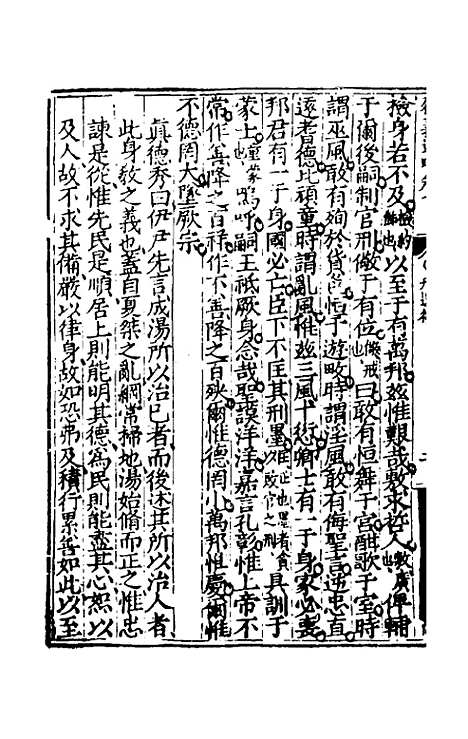 檢身若不及以至于有萬邦茲惟艱哉敷求哲人俾輔
于爾後嗣制官刑儆于有位曰敢有恒舞于宮酣歌于室時
謂巫風敢有殉於貨色恒于遊畋時謂淫風敢有侮聖言逆忠直
遠耆德比頑童時謂亂風惟茲三風十愆卿士有一于身家必喪
邦君有一于身國必亡臣下不匡其刑墨具訓于
蒙士嗚呼嗣王祗厥身念哉聖謨洋洋嘉言孔彰惟上帝不
常作善降之百祥作不善降之百殃爾惟德罔小萬邦惟慶爾惟
不德罔大墜厥宗
真德秀曰伊尹先言成湯所以治已者而後述其所以治人者
此身教之義也蓋自夏桀之亂綱常掃地湯始脩而正之惟忠
諫是從惟先民是順居上則能明其德為民則能盡其心恕以
及人故不求其備嚴以律身故如恐弗及積行累善如此以至